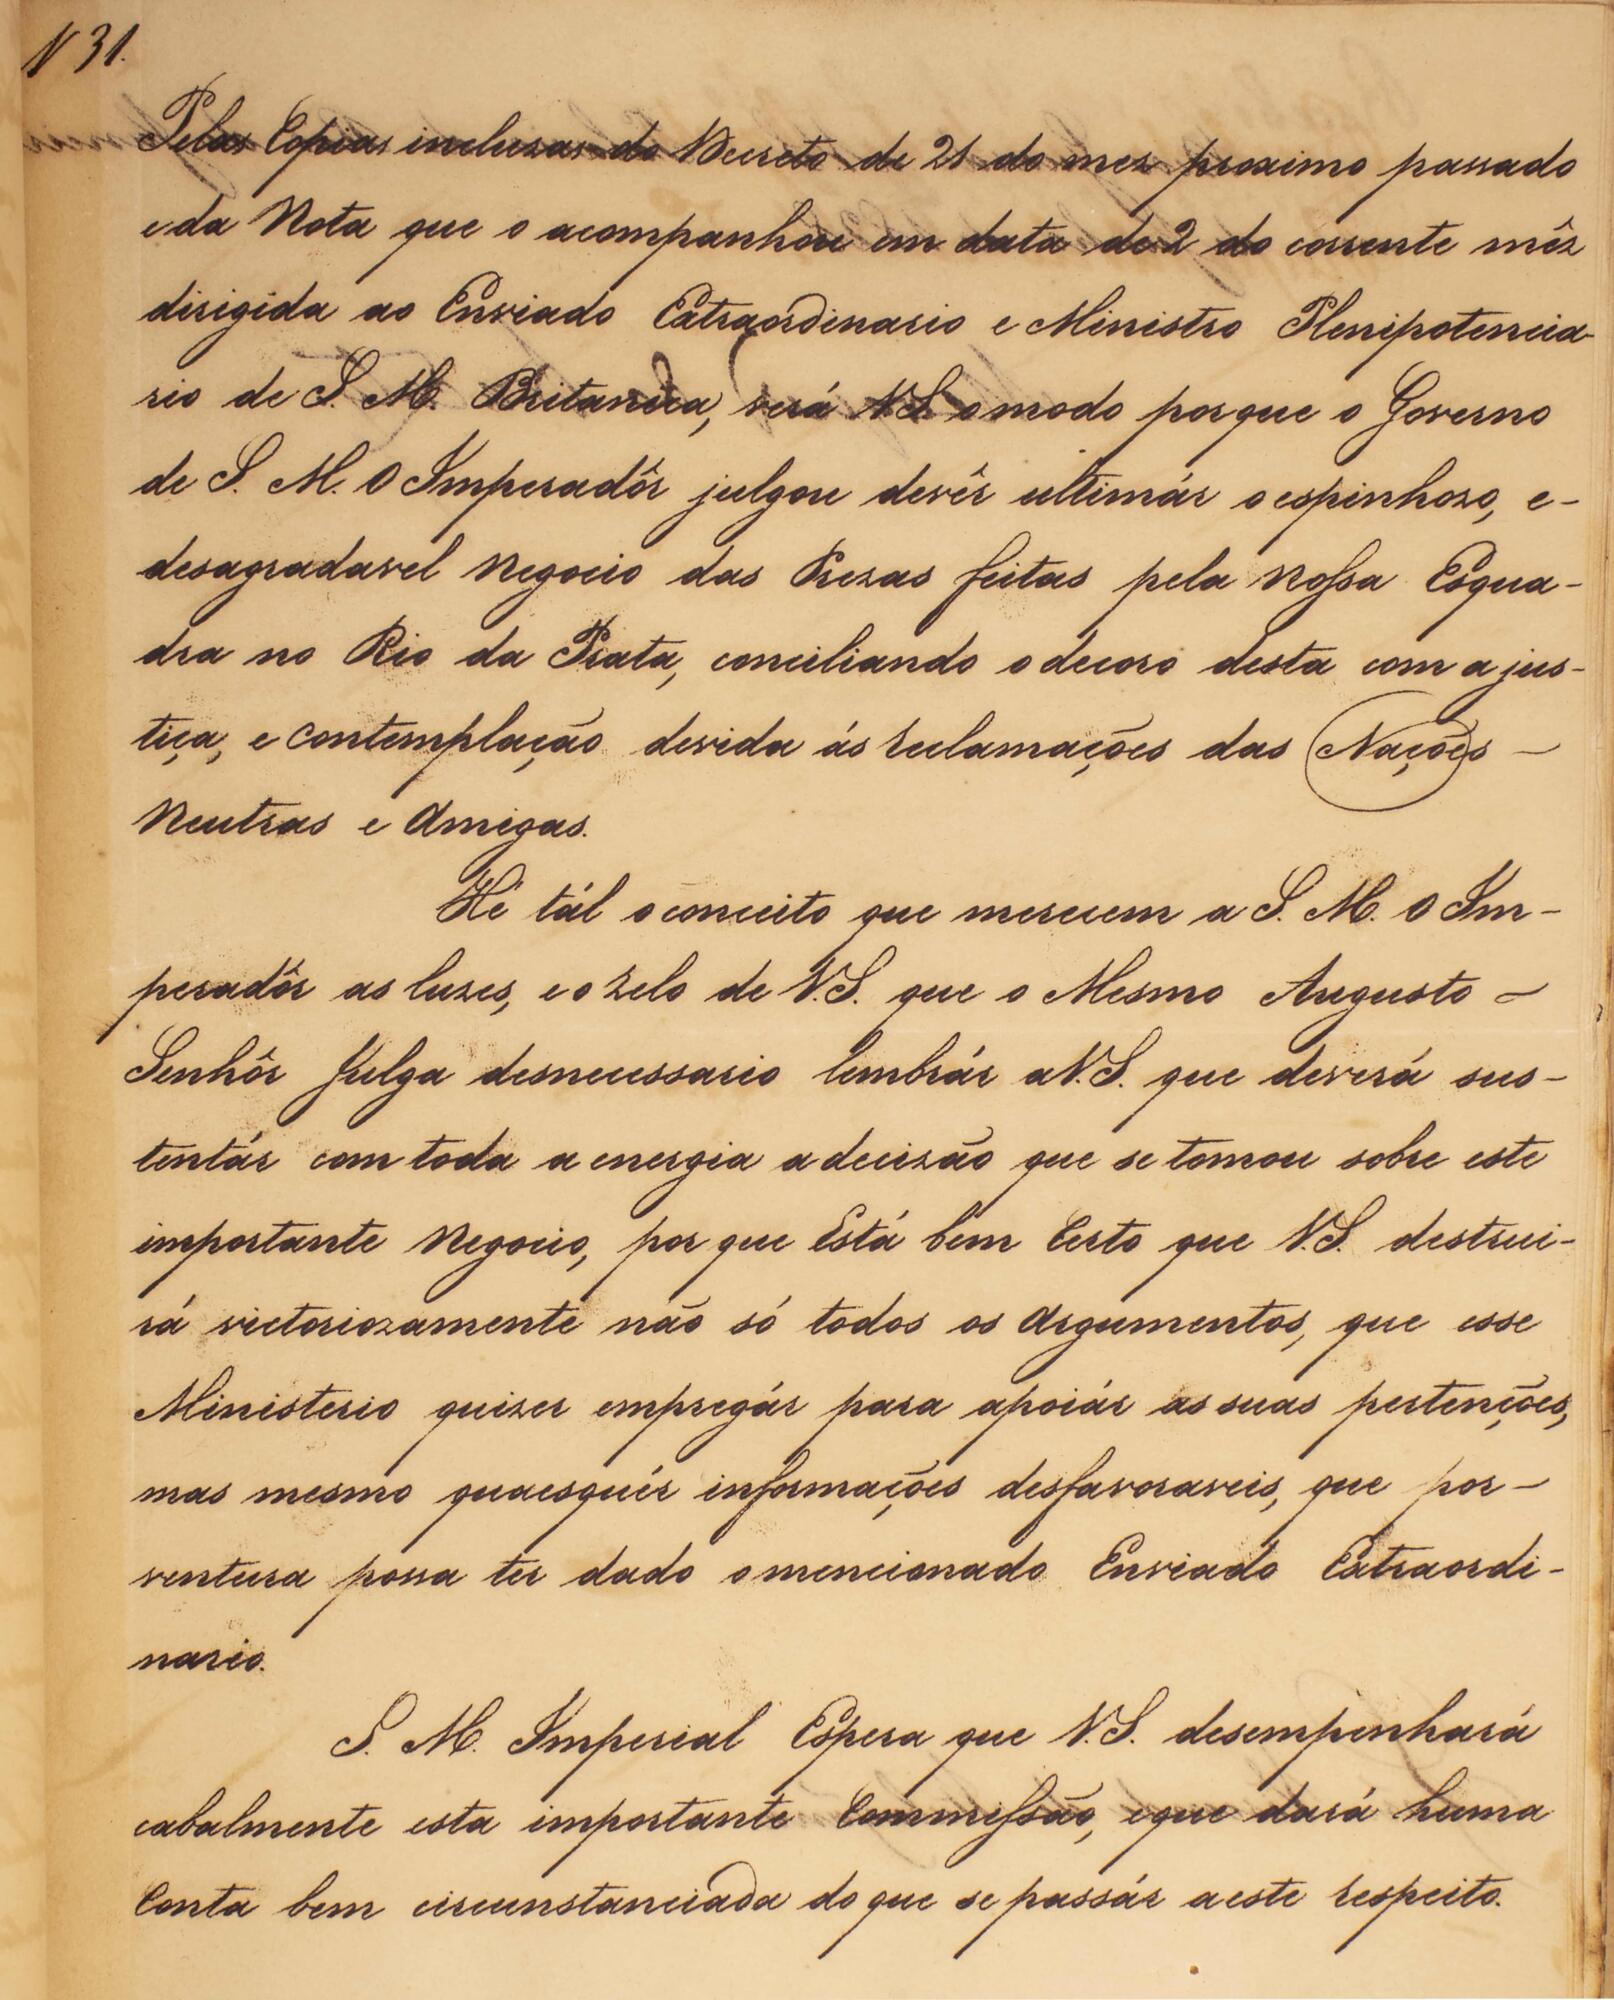 N 31.
Pelas Copias inclusas do Decreto de 21 do mez proximo passado
e da Nota que o acompanhou em data de 2 do corrente mêz
dirigida ao Enviado Extraordinario e Ministro Plenipotencia-
rio de S. M. Britanica, verá V.S. o modo porque o Governo
de S. M. O Imperadôr julgou devêr ultimár o espinhozo, e-
desagradavel Negocio das Prezas feitas pela Nossa Esqua-
dra no Rio da Prata, conciliando o decoro desta com a jus-
tiça, e contemplação devida ás reclamações das Nações -
Neutras e Amigas.
Hé tál o conceito que merecem a S. M. O Im-
peradôr as luzes, e o zelo de V.S. que o Mesmo Augusto -
Senhôr Julga desnecessario lembrár a V.S. que deverá sus-
tentár com toda a energia a decizão que se tomou sobre este
importante Negocio, por que Está bem Certo que V.S. destrui-
rá victoriozamente não só todos os Argumentos, que esse
Ministerio quizer empregár para apoiár as suas pertenções,
mas mesmo quaesquér informações desfavoraveis, que por-
ventura possa ter dado o mencionado Enviado Extraordi-
nario.
S. M. Imperial Espera que V.S. desempenhará
cabalmente esta importante Commissão, e que dará huma
Conta bem circunstanciada do que se passár a este respeito.